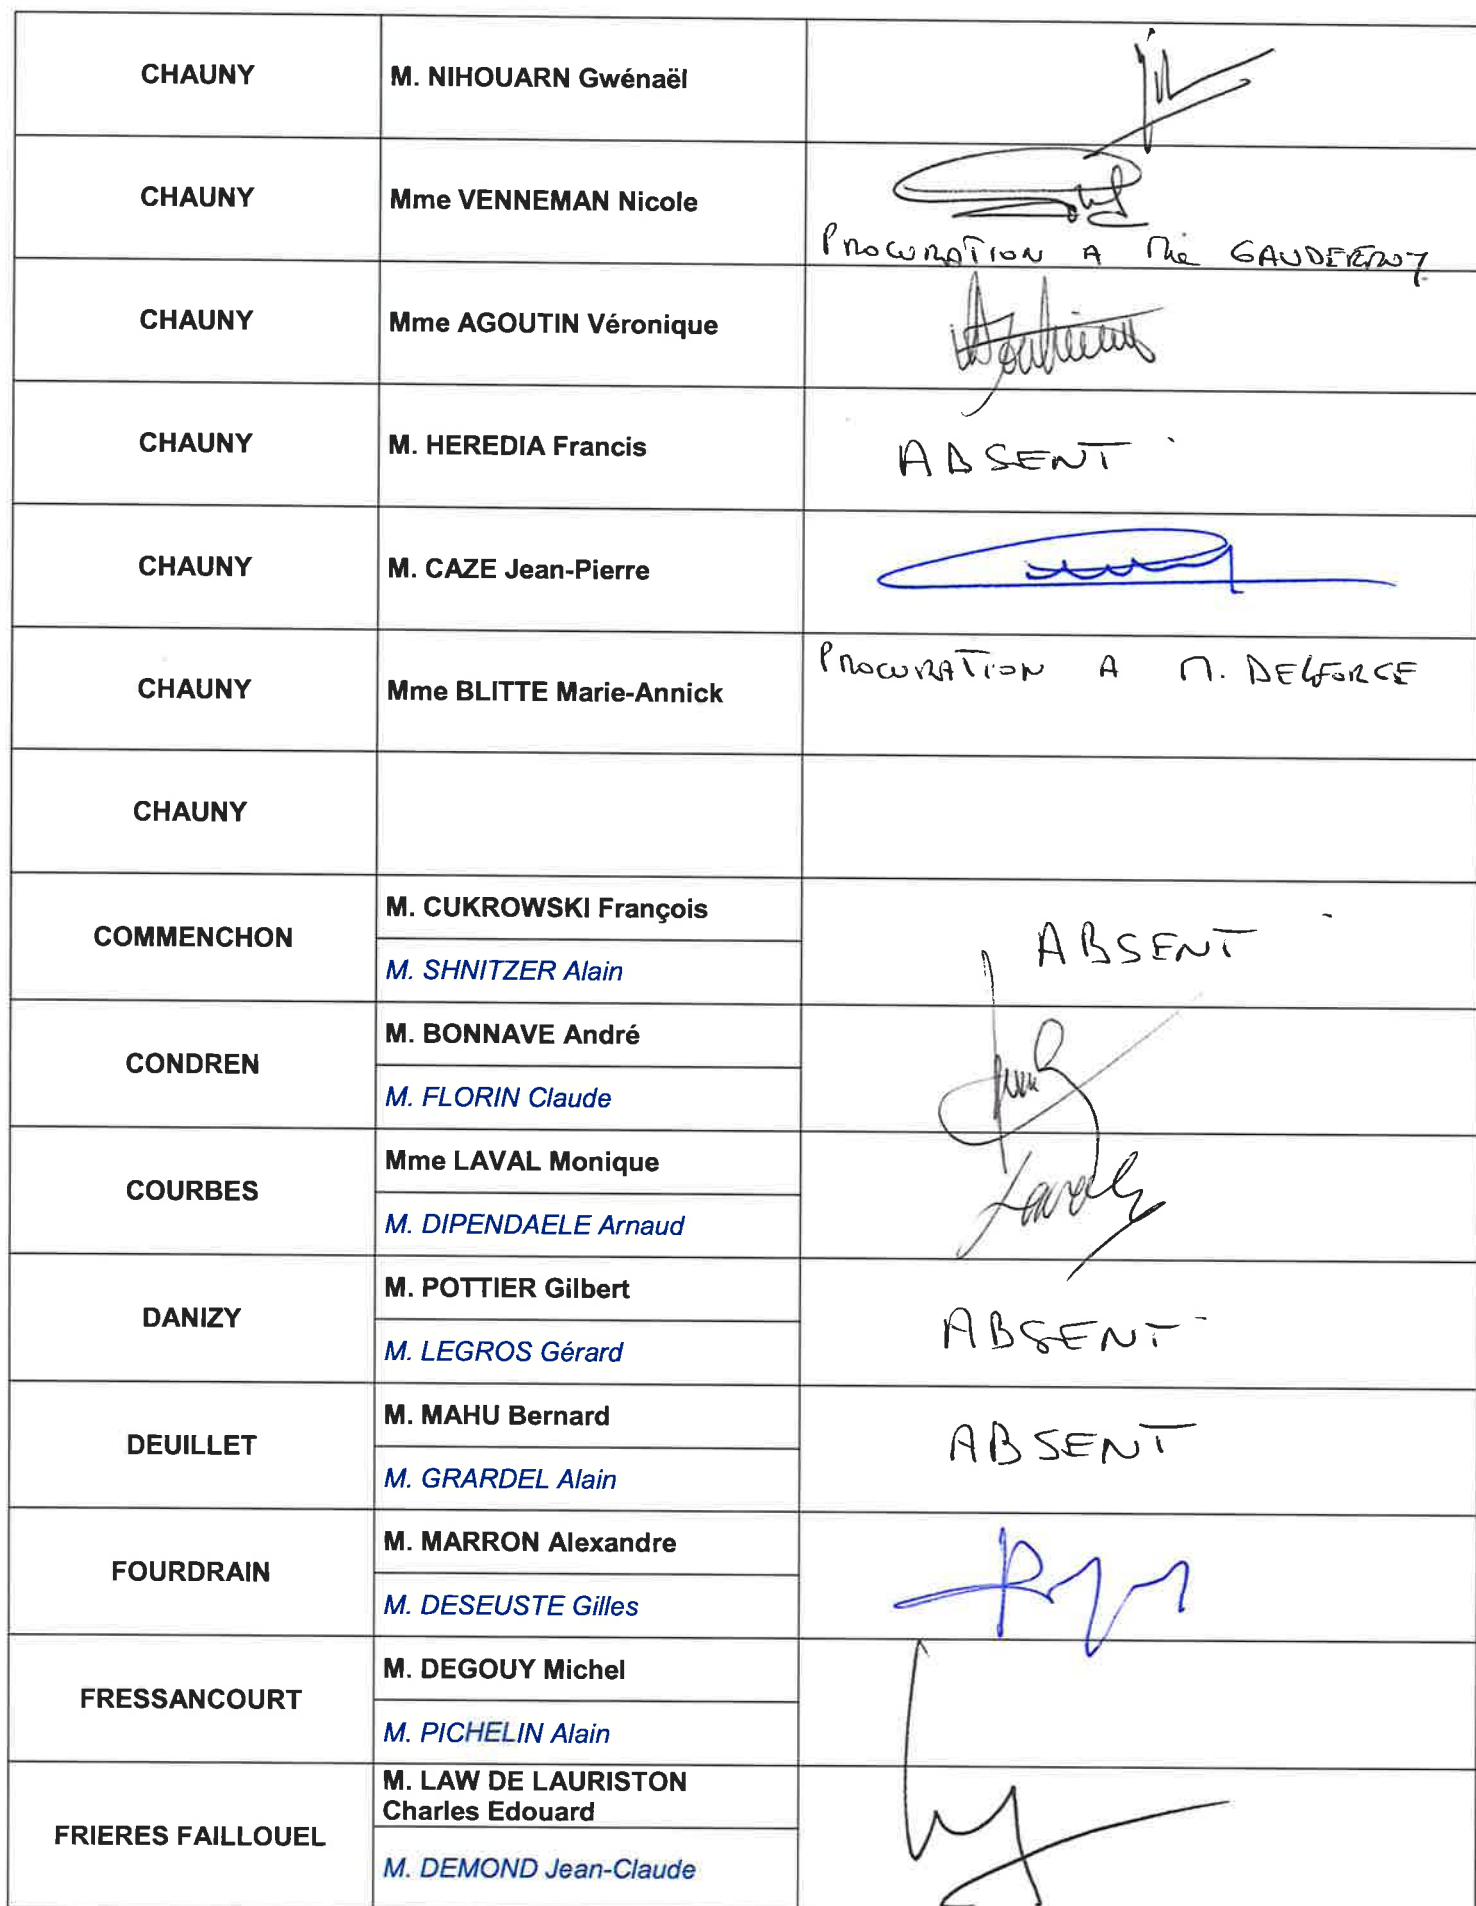 CHAUNY
M. NIHOUARN Gwénaël
CHAUNY
Mme VENNEMAN Nicole
PROCURATION A Me GAUDEFROY
CHAUNY
Mme AGOUTIN Véronique
CHAUNY
M. HEREDIA Francis
ABSENT
CHAUNY
M. CAZE Jean-Pierre
CHAUNY
Mme BLITTE Marie-Annick
PROCURATION A M. DELFORCE
CHAUNY
COMMENCHON
M. CUKROWSKI François
M. SHNITZER Alain
ABSENT
CONDREN
M. BONNAVE André
M. FLORIN Claude
COURBES
Mme LAVAL Monique
M. DIPENDAELE Arnaud
DANIZY
M. POTTIER Gilbert
M. LEGROS Gérard
ABSENT
DEUILLET
M. MAHU Bernard
M. GRARDEL Alain
ABSENT
FOURDRAIN
M. MARRON Alexandre
M. DESEUSTE Gilles
FRESSANCOURT
M. DEGOUY Michel
M. PICHELIN Alain
FRIERES FAILLOUEL
M. LAW DE LAURISTON
Charles Edouard
M. DEMOND Jean-Claude